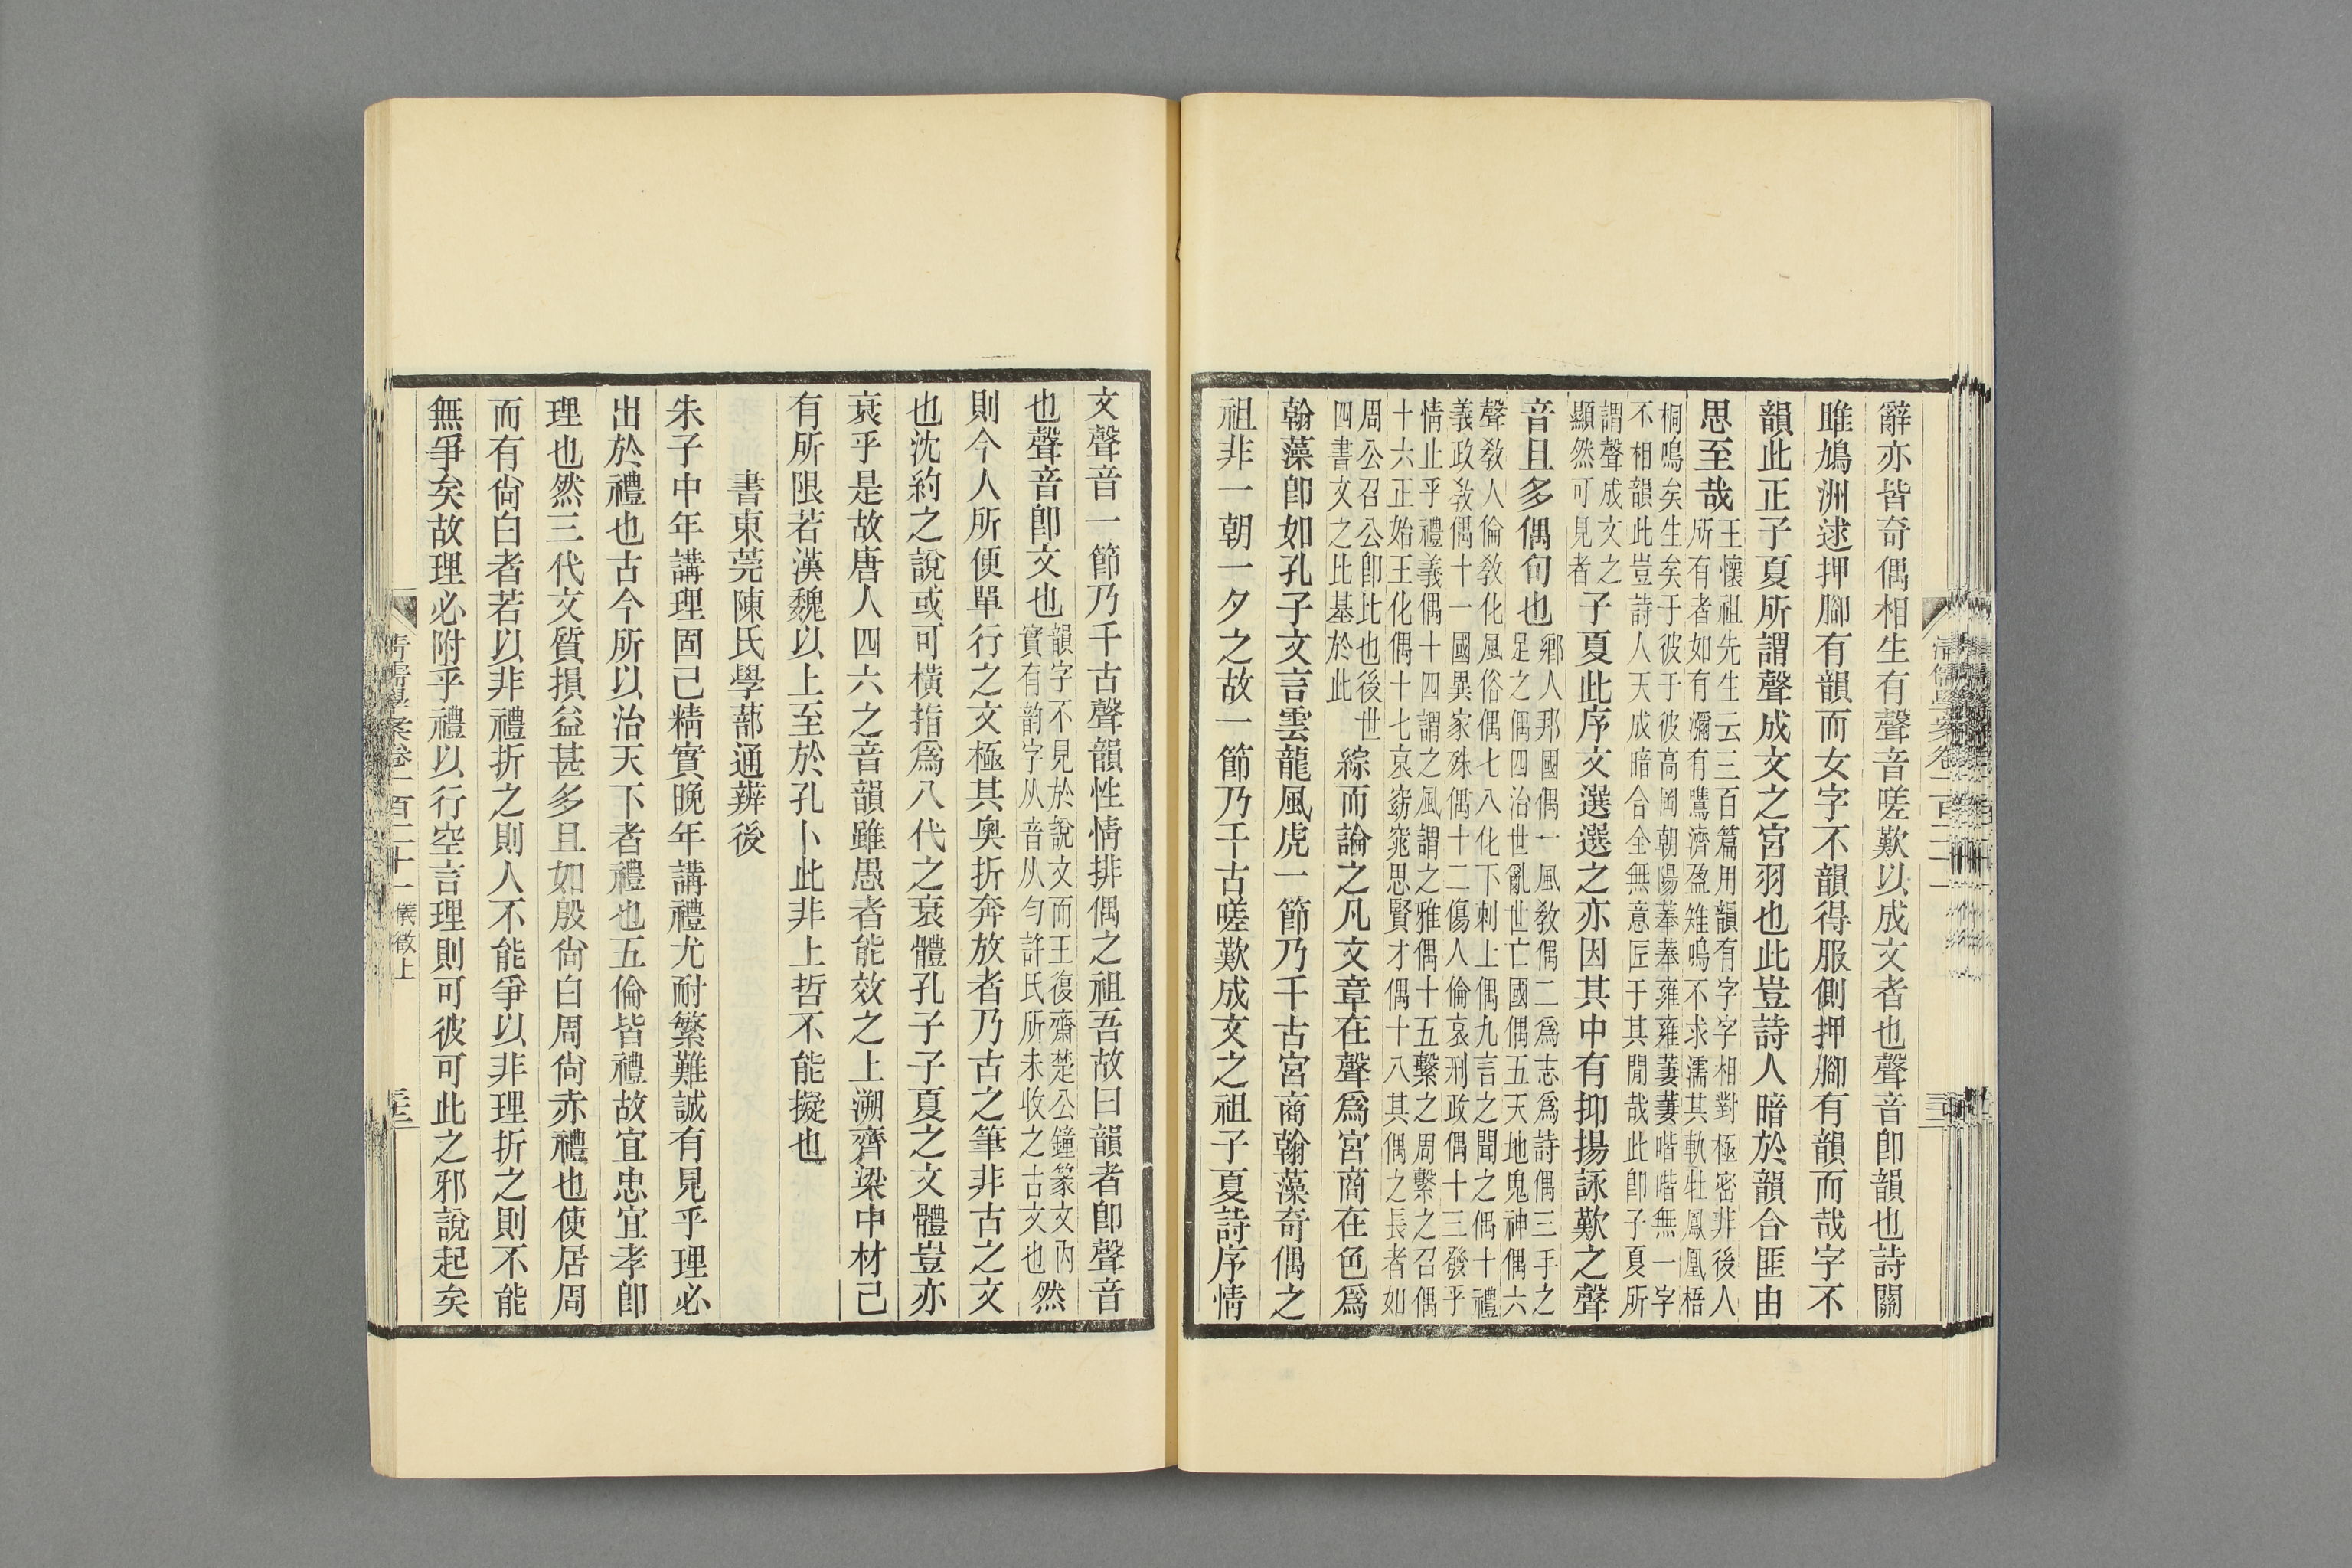 辭亦皆奇偶相生有聲音嗟歎以成文者也聲音卽韻也詩關
雎鳩洲逑押腳有韻而女字不韻得服側押腳有韻而哉字不
韻此正子夏所謂聲成文之宮羽也此豈詩人暗於韻合匪由
思至哉
王懷祖先生云三百篇用韻有字字相對極密非後人
所有者如有瀰有鷕濟盈雉鳴不求濡其軌牡鳳凰梧
桐鳴矣生矣于彼于彼高岡朝陽菶菶雍雍萋萋喈喈無一字
不相韻此豈詩人天成暗合全無意匠于其閒哉此卽子夏所
謂聲成文之
顯然可見者
子夏此序文選選之亦因其中有抑揚詠歎之聲
音且多偶句也
鄉人邦國偶一風敎偶二爲志爲詩偶三手之
足之偶四治世亂世亡國偶五天地鬼神偶六
聲敎人倫敎化風俗偶七八化下刺上偶九言之聞之偶十禮
義政敎偶十一國異家殊偶十二傷人倫哀刑政偶十三發乎
情止乎禮義偶十四謂之風謂之雅偶十五繫之周繫之召偶
十六正始王化偶十七哀窈窕思賢才偶十八其偶之長者如
周公召公卽比也後世
四書文之比基於此
綜而論之凡文章在聲爲宮商在色爲
翰藻卽如孔子文言雲龍風虎一節乃千古宮商翰藻奇偶之
祖非一朝一夕之故一節乃千古嗟歎成文之祖子夏詩序情
文聲音一節乃千古聲韻性情排偶之祖吾故曰韻者卽聲音
也聲音卽文也
韻字不見於說文而王復齋楚公鐘篆文內
實有韵字从音从匀許氏所未收之古文也
然
則今人所便單行之文極其奧折奔放者乃古之筆非古之文
也沈約之說或可橫指爲八代之衰體孔子子夏之文體豈亦
衰乎是故唐人四六之音韻雖愚者能效之上溯齊梁中材已
有所限若漢魏以上至於孔卜此非上哲不能擬也
書東莞陳氏學蔀通辨後
朱子中年講理固己精實晚年講禮尤耐繁難誠有見乎理必
出於禮也古今所以治天下者禮也五倫皆禮故宜忠宜孝卽
理也然三代文質損益甚多且如殷尙白周尙赤禮也使居周
而有尙白者若以非禮折之則人不能爭以非理折之則不能
無爭矣故理必附乎禮以行空言理則可彼可此之邪說起矣
清儒學案卷一百二十一儀徵上